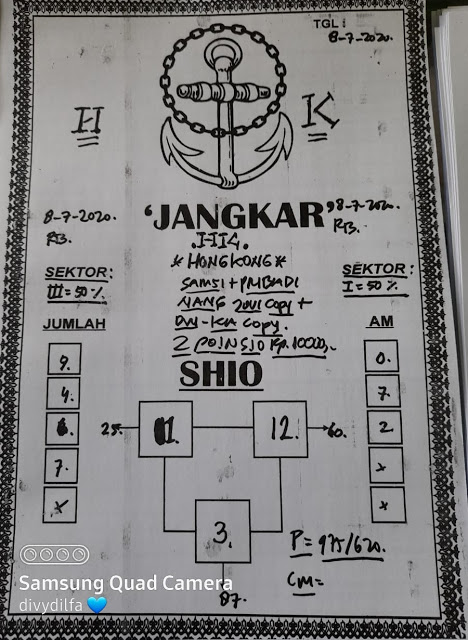 TGL :
8-7-2020.
H
K
'JANGKAR'
8-7-2020.
RB.
8-7-2020.
RB.
.HK.
* HONGKONG *
SEKTOR :
III = 50 %
SEKTOR :
I = 50 %
COPY +
COPY.
2 POIN SIO Rp. 10000,-
JUMLAH
AM
SHIO
9.
4.
6.
7.
x
0.
7.
2
x
x
25.
11.
12.
60.
3.
87.
P = 975/620.
CM =
Samsung Quad Camera
divydilfa 💙